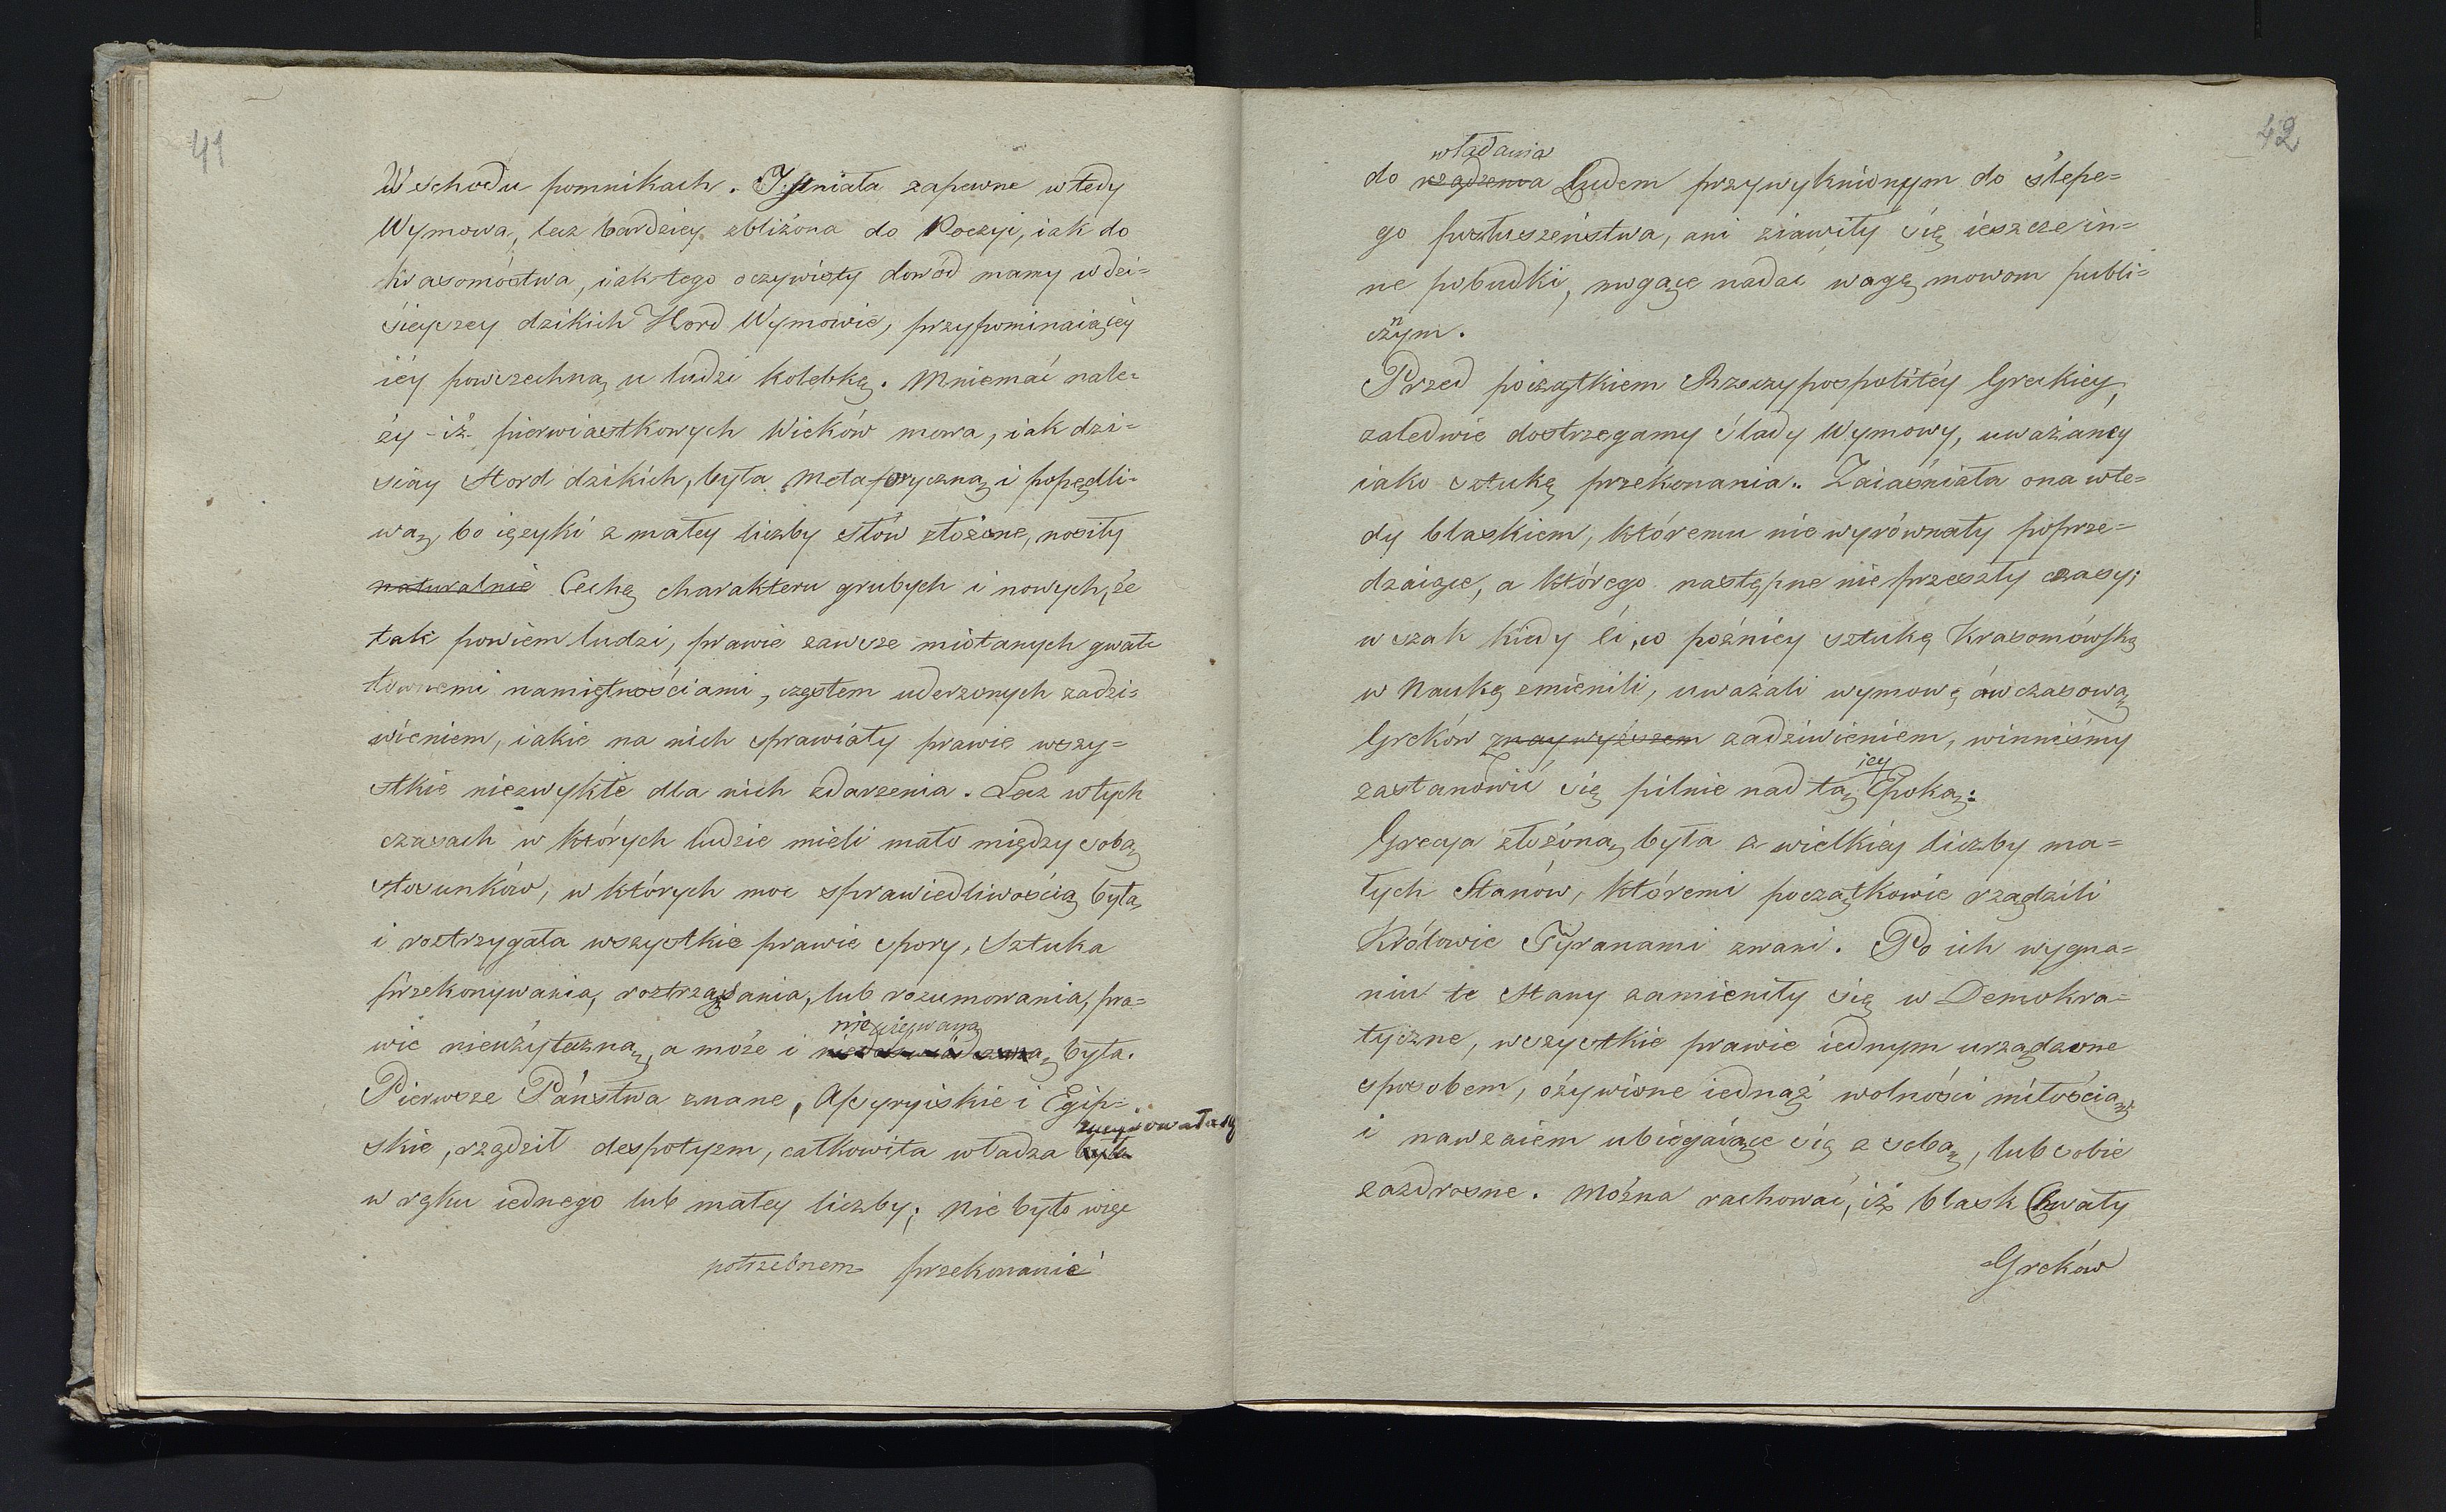 41
Wschodu pomnikach. Istniała zapewne wtedy
Wymowa, lecz bardziey zbliżona do Poezyi, iak do
krasomóstwa, iak tego oczywisty dowód mamy w dzi=
sieyszey dzikich Hord Wymowie, przypominaiącéy
iéy powszechną u ludzi kolebkę. Mniemać nale=
ży iż pierwiastkowych Wieków mowa, iak dzi=
siay Hord dzikich, była metaforyczną i popędli=
wą, bo ięzyki z małey liczby słów złożone, nosiły
naturalnie Cechę charakteru grubych i nowych, że
tak powiem ludzi, prawie zawsze miotanych gwał=
townemi namiętnościami, częstem uderzonych zadzi=
wieniem, iakie na nich sprawiały prawie wszy=
stkie niezwykłe dla nich zdarzenia. Lecz w tych
czasach w których ludzie mieli mało między sobą
stosunków, w których moc sprawiedliwością była,
i roztrzygała wszystkie prawie spory, Sztuka
przekonywania, roztrząsania, lub rozumowania, pra=
nieużywaną
wie nieużyteczną, a może i była.
Pierwsze Państwa znane, Assyryiskie i Egip=
znaydowała się
skie, rządził despotyzm, całkowita władza była
w ręku iednego lub małey liczby; nie było więc
potrzebnem przekonanie
42
władania
do rządzenia Ludem przywyknionym do ślepe=
go posłuszeństwa, ani ziawiły się ieszcze in=
ne pobudki, mogące nadać wagę mowom publi=
n
czym.
Przed początkiem Rzeczypospolitéy Greckiey,
zaledwie dostrzegamy ślady Wymowy, uważaney
iako sztukę przekonania. Zaiaśniała ona wte=
dy blaskiem, któremu nie wyrównały poprze=
dzaiące, a którego następne nie przeszły czasy;
wszak kiedy ci, co poźniey sztukę Krasomówską
w Naukę zmienili, uważali wymowę ówczasową
Greków z naywyższem zadziwieniem, winniśmy
iey
zastanowić się pilnie nad tą Epoką:
Grecya złożoną była z wielkiey liczby ma=
łych Stanów, któremi początkowie rządzili
Królowie Tyranami zwani. Po ich wygna=
niu te Stany zamieniły się w Demokra=
tyczne, wszystkie prawie iednym urządzone
sposobem, ożywione iednąż wolności miłością
i nawzaiem ubiegaiące się z sobą, lub sobie
zazdrosne. Można rachować, iż blask Chwały
Greków